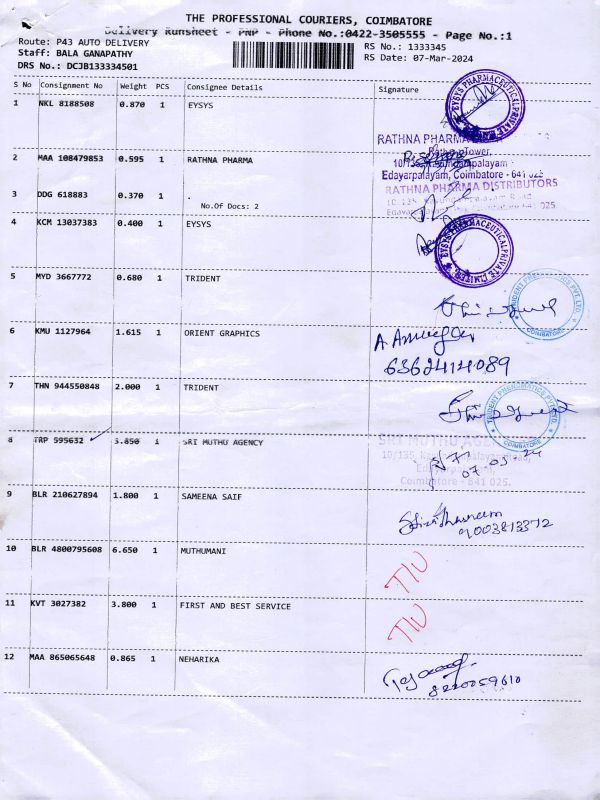 THE PROFESSIONAL COURIERS, COIMBATORE
Delivery Runsheet - PNP - Phone No.:0422-3505555 - Page No.:1
Route: P43 AUTO DELIVERY
RS No.: 1333345
Staff: BALA GANAPATHY
RS Date: 07-Mar-2024
DRS No.: DCJB133334501
S No Consignment No Weight PCS Consignee Details Signature
1 NKL 8188508 0.870 1 EYSYS
EYSYS PHARMACEUTICAL PRIVATE LIMITED
RATHNA PHARMA
Rathna Tower,
2 MAA 108479853 0.595 1 RATHNA PHARMA
Edayarpalayam, Coimbatore - 641 025
RATHNA PHARMA DISTRIBUTORS
3 DDG 618883 0.370 1 .
No.Of Docs: 2
4 KCM 13037383 0.400 1 EYSYS
EYSYS PHARMACEUTICAL PRIVATE LIMITED
5 MYD 3667772 0.680 1 TRIDENT
TRIDENT PNEUMATICS PVT. LTD.
COIMBATORE
6 KMU 1127964 1.615 1 ORIENT GRAPHICS
7 THN 944550848 2.000 1 TRIDENT
TRIDENT PNEUMATICS PVT. LTD.
COIMBATORE
8 TRP 595632 3.850 1 SRI MUTHU AGENCY
SRI MUTHU AGENCY
07 03 24
Coimbatore - 641 025.
9 BLR 210627894 1.800 1 SAMEENA SAIF
9003813372
10 BLR 4800795608 6.650 1 MUTHUMANI
11 KVT 3027382 3.800 1 FIRST AND BEST SERVICE
12 MAA 865065648 0.865 1 NEHARIKA
8220059610